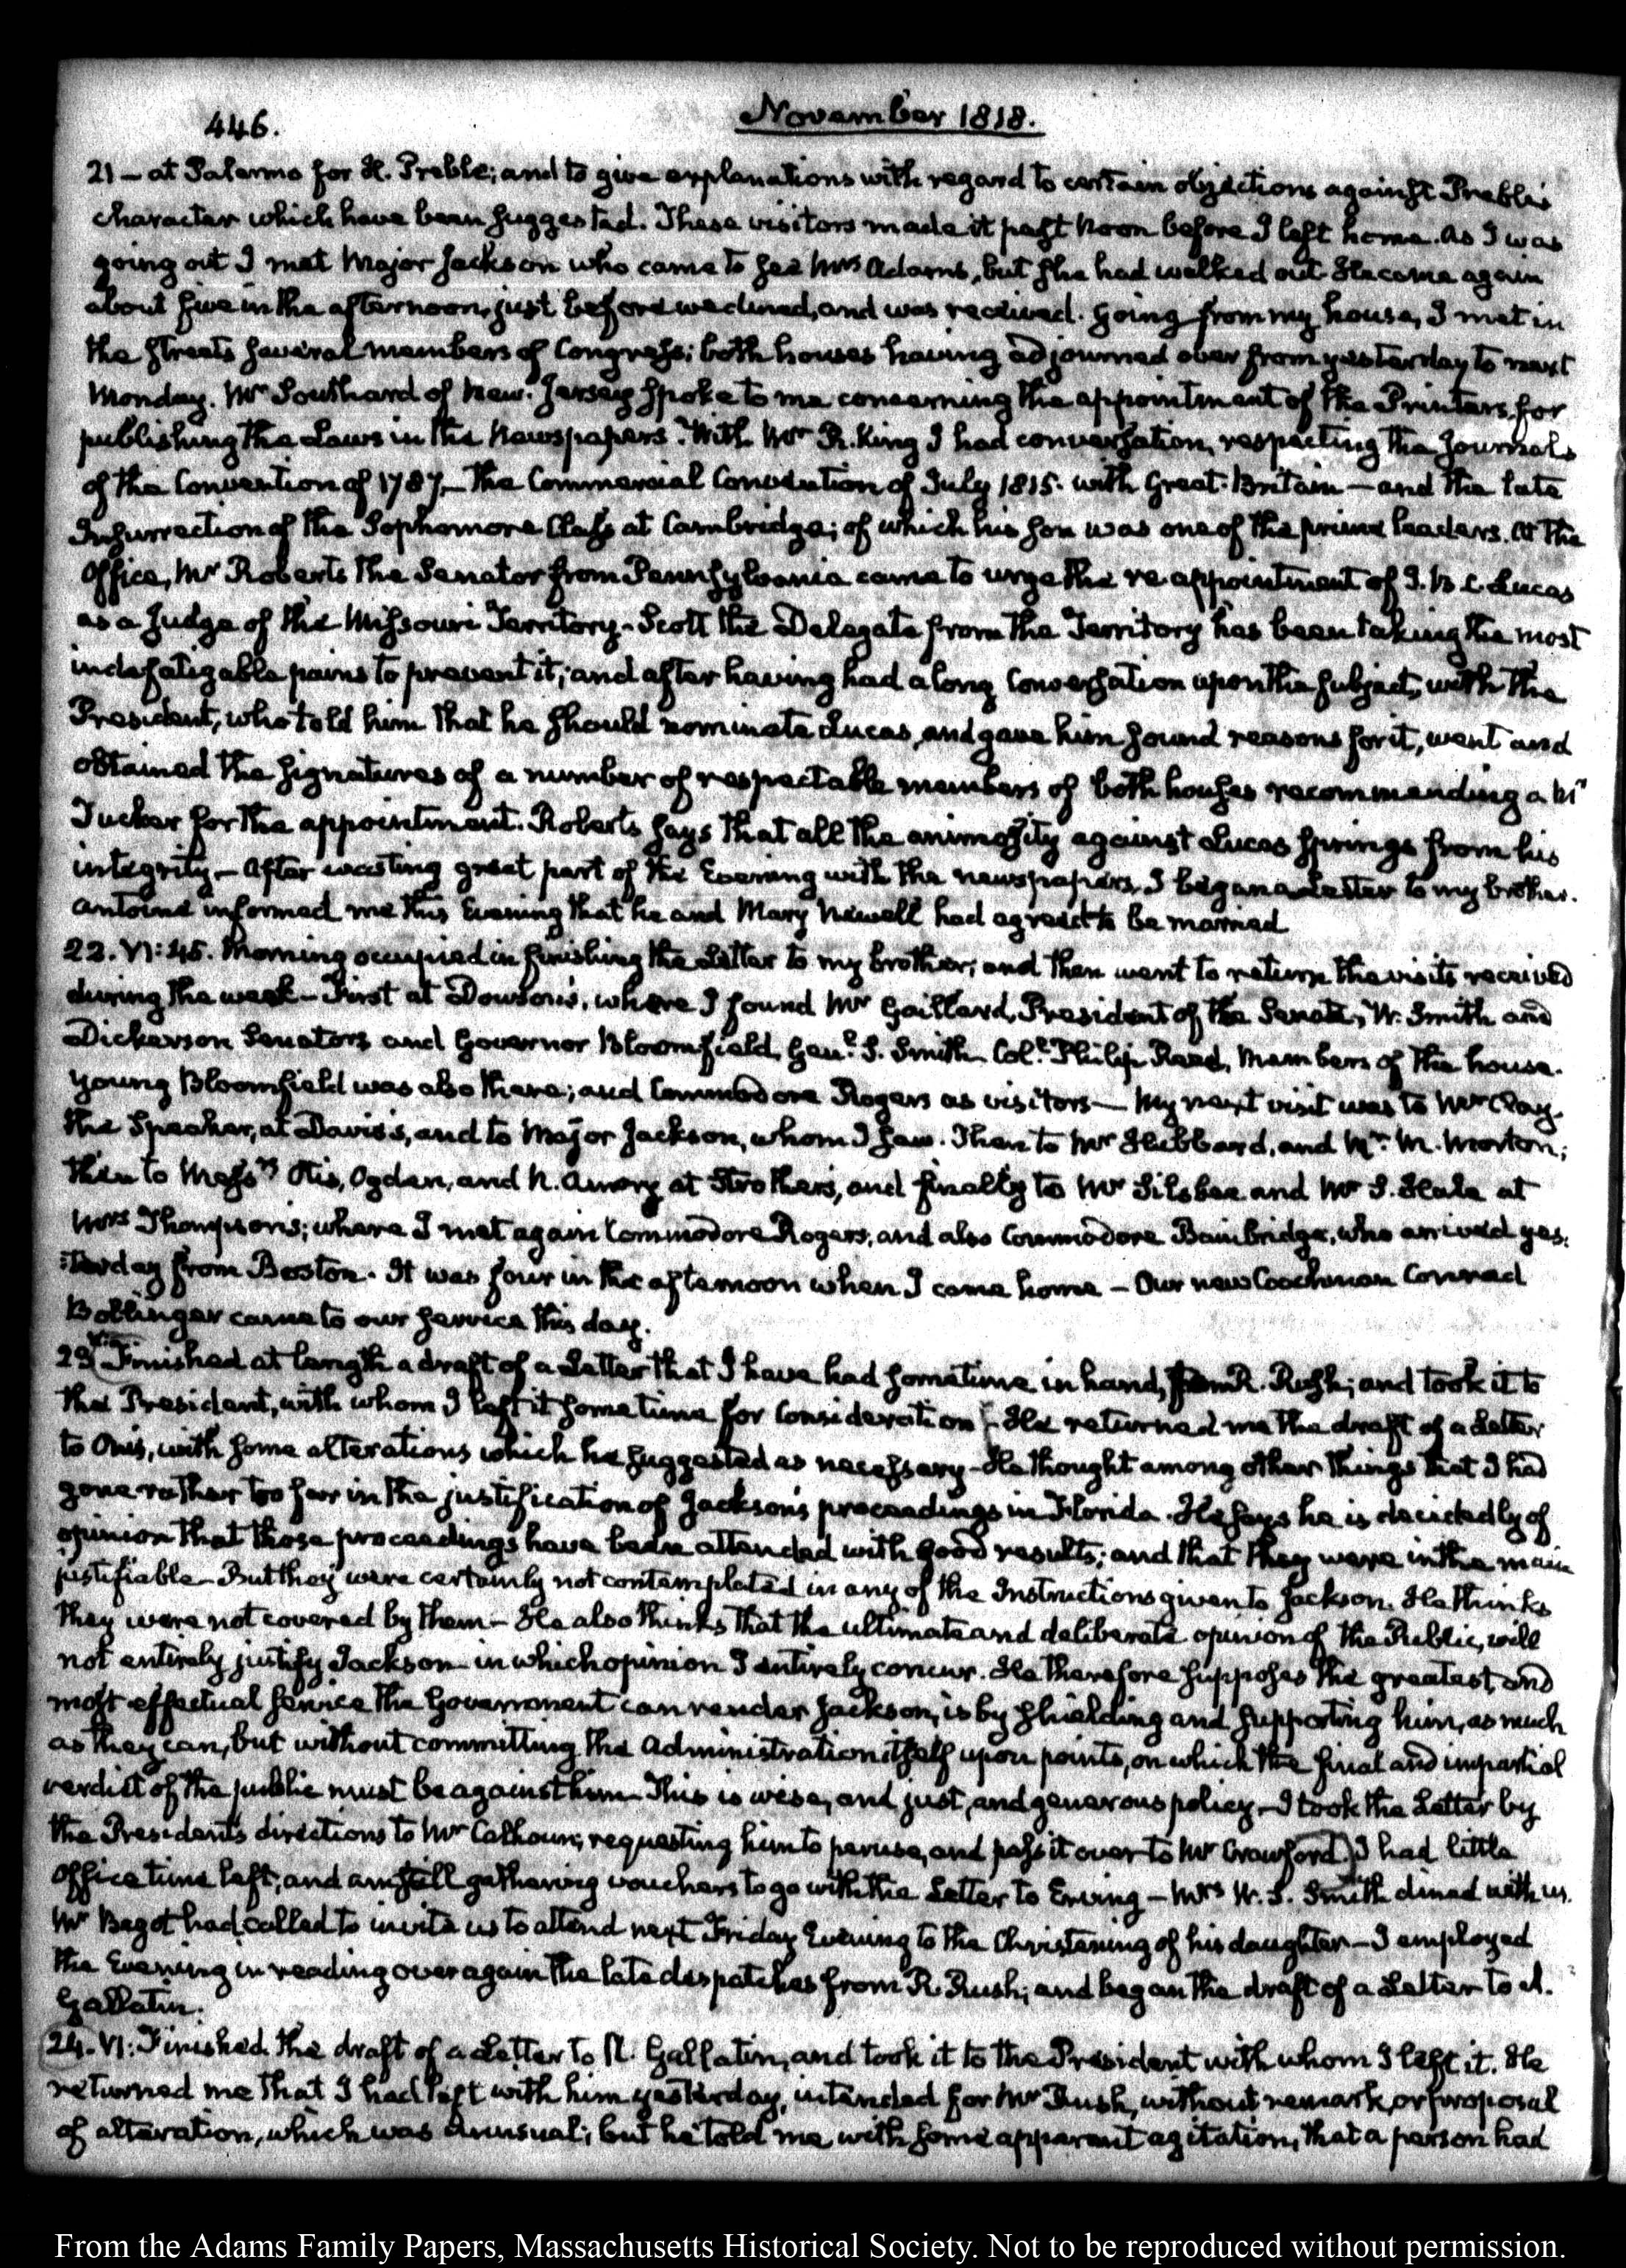 446. November 1818.
21 — at Palermo for H. Preble; and to give explanations with regard to certain objections against Preble's
character which have been suggested. These visitors made it past Noon before I left home. As I was
going out I met Major Jackson who came to see Mrs Adams, but she had walked out. He came again
about five in the afternoon, just before we dined, and was received. Going from my house, I met in
the streets several members of Congress; both houses having adjourned over from yesterday to next
Monday. Mr Southard of New-Jersey spoke to me concerning the appointment of the Printers, for
publishing the Laws in the Newspapers. With Mr R. King I had conversation, respecting the Journals
of the Convention of 1787,— The Commercial Convention of July 1815. with Great-Britain — and the late
Insurrection of the Sophomore Class at Cambridge; of which his son was one of the prime leaders. At the
Office, Mr Roberts the Senator from Pennsylvania came to urge the re-appointment of J. B. C. Lucas
as a Judge of the Missouri Territory - Scott the Delegate from the Territory has been taking the most
indefatigable pains to prevent it; and after having had a long Conversation upon the subject, with the
President, who told him that he should nominate Lucas, and gave him sound reasons for it, went and
obtained the signatures of a number of respectable members of both houses recommending a Mr
Tucker for the appointment. Roberts says that all the animosity against Lucas springs from his
integrity — After wasting great part of the Evening with the newspapers, I began a Letter to my brother.
Antoine informed me this Evening that he and Mary Newell had agreed to be married
22. VI:45. Morning occupied in finishing the Letter to my brother; and then went to return the visits received
during the week — First at Dowson's, where I found Mr Gaillard, President of the Senate, W. Smith and
Dickerson Senators and Governor Bloomfield, Genl. S. Smith Coll. Philip Reed, Members of the house.
Young Bloomfield was also there; and Commodore Rogers as visitors — My next visit was to Mr Clay,
the Speaker, at Davis's, and to Major Jackson, whom I saw. Then to Mr Hubbard, and Mr. M. Morton;
then to Messrs Otis, Ogden, and N. Amory at Strother's, and finally to Mr Silsbee and Mr S. Hale at
Mrs Thompson's; where I met again Commodore Rogers, and also Commodore Bainbridge, who arrived yes:
:terday from Boston. It was four in the afternoon when I came home — Our new Coachman Conrad
Bollinger came to our service this day.
23. VI: Finished at length a draft of a Letter that I have had sometime in hand, R. Rush; and took it to
the President, with whom I left it some time for consideration — He returned me the draft of a Letter
to Onis, with some alterations which he suggested as necessary — He thought among other things that I had
gone rather too far in the justification of Jackson's proceedings in Florida. He says he is decidedly of
opinion that those proceedings have been attended with good results; and that they were in the main
justifiable — But they were certainly not contemplated in any of the Instructions given to Jackson. He thinks
they were not covered by them — He also thinks that the ultimate and deliberate opinion of the Public, will
not entirely justify Jackson — in which opinion I entirely concur. He therefore supposes the greatest, and
most effectual service the Government can render Jackson, is by shielding and supporting him, as much
as they can, but without committing the Administration itself upon points, on which the final and impartial
verdict of the public must be against him — This is wise, and just, and generous policy — I took the Letter by
the President's directions to Mr Calhoun, requesting him to peruse, and pass it over to Mr Crawford. I had little
Office time left, and am still gathering vouchers to go with the Letter to Erving — Mrs W. S. Smith dined with us.
Mr Bagot had called to invite us to attend next Friday Evening to the Christening of his daughter — I employed
the Evening in reading over again the late despatches from R. Rush; and began the draft of a Letter to A.
Gallatin.
24. VI: Finished the draft of a Letter to A. Gallatin, and took it to the President with whom I left it. He
returned me that I had left with him yesterday, intended for Mr Rush, without remark, or proposal
of alteration, which was unusual; but he told me with some apparent agitation, that a person had
From the Adams Family Papers, Massachusetts Historical Society. Not to be reproduced without permission.